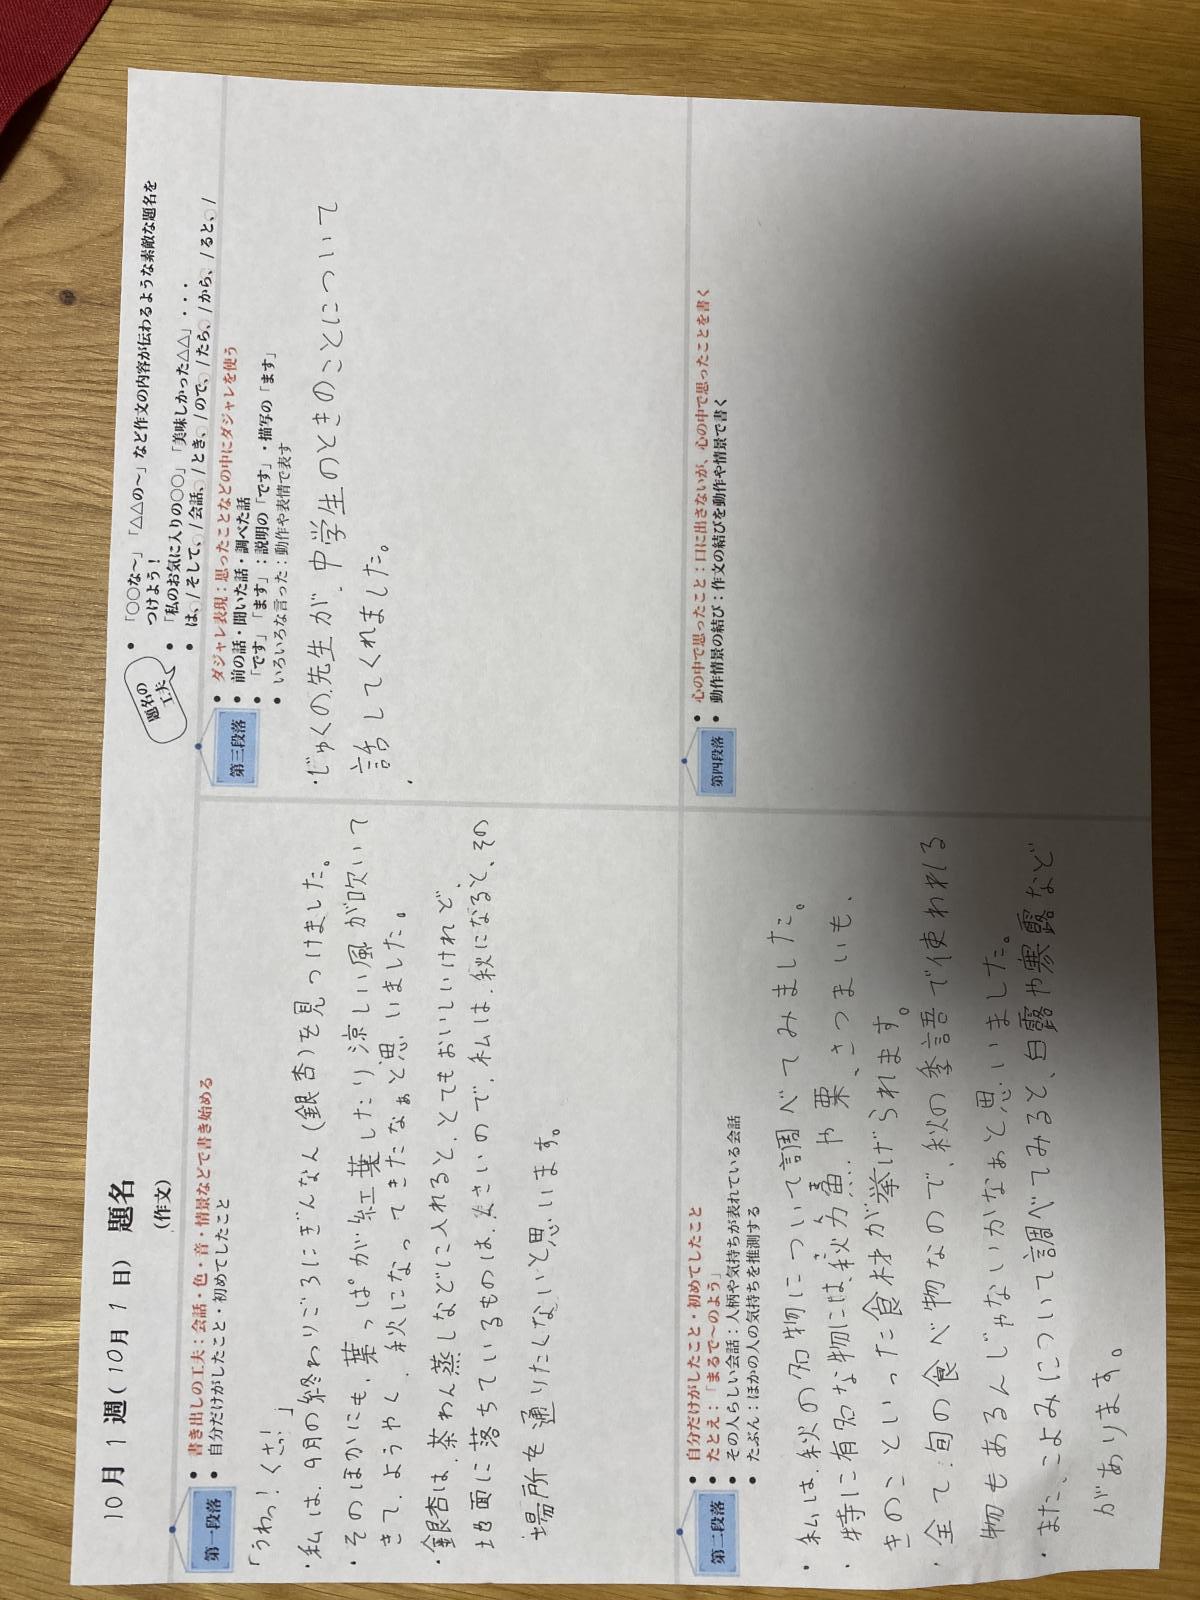 10月 1 週( 10月 1 日) 題名
(作文)
題名の
工夫
• 「○○な~」「△△の~」など作文の内容が伝わるような素敵な題名を
つけよう!
• 「私のお気に入りの○○」「美味しかった△△」・・・
• は、/そして、/会話、/とき、/ので、/たら、/から、/ると、/
第一段落
• 書き出しの工夫:会話・色・音・情景などで書き始める
• 自分だけがしたこと・初めてしたこと
「うわっ!くさっ!」
・私は、9月の終わりごろにぎんなん(銀杏)を見つけました。
・そのほかにも、葉っぱが紅葉したり涼しい風が吹いて
きて、ようやく、秋になってきたなぁと思いました。
・銀杏は、茶わん蒸しなどに入れると、とてもおいしいけれど、
地面に落ちているものは、くさいので、私は、秋になると、その
場所を通りたくないと思います。
第二段落
• 自分だけがしたこと・初めてしたこと
• たとえ:「まるで~のよう」
• その人らしい会話:人柄や気持ちが表れている会話
• たぶん:ほかの人の気持ちを推測する
・私は、秋の名物について調べてみました。
・特に有名な物には、秋刀魚や栗、さつまいも、
さんま
きのこといった食材が挙げられます。
・全て、旬の食べ物なので、秋の季語で使われる
物もあるんじゃないかなぁと思いました。
・また、こよみについて調べてみると、白露や寒露など
があります。
第三段落
• ダジャレ表現:思ったことなどの中にダジャレを使う
• 前の話・聞いた話・調べた話
• 「です」「ます」:説明の「です」・描写の「ます」
• いろいろな言った:動作や表情で表す
・じゅくの先生が、中学生のときのことについて
話してくれました。
・
第四段落
• 心の中で思ったこと:口に出さないが、心の中で思ったことを書く
• 動作情景の結び:作文の結びを動作や情景で書く